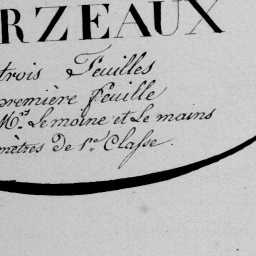 RZEAUX
trois Feuilles
première feuille
Mrs. Lemoine et Le mains
mètres de 1re Classe.